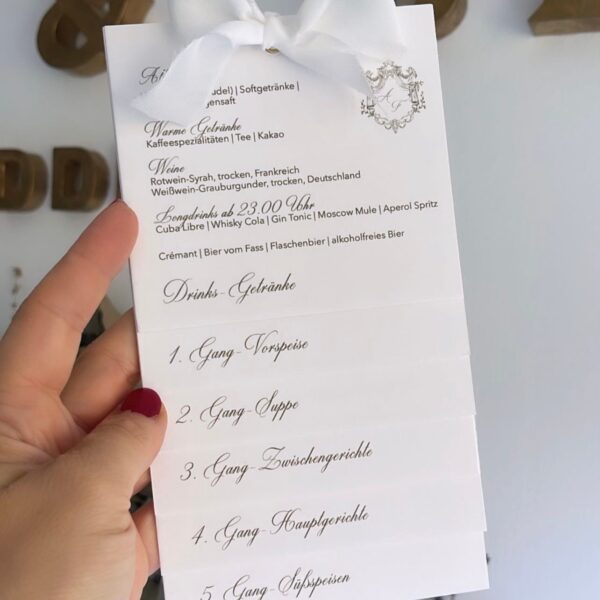 udel) | Softgetränke |
gensaft
Warme Getränke
Kaffeespezialitäten | Tee | Kakao
Weine
Rotwein-Syrah, trocken, Frankreich
Weißwein-Grauburgunder, trocken, Deutschland
Longdrinks ab 23.00 Uhr
Cuba Libre | Whisky Cola | Gin Tonic | Moscow Mule | Aperol Spritz
Crémant | Bier vom Fass | Flaschenbier | alkoholfreies Bier
Drinks-Getränke
1. Gang-Vorspeise
2. Gang-Suppe
3. Gang-Zwischengerichte
4. Gang-Hauptgerichte
5. Gang-Süßspeisen